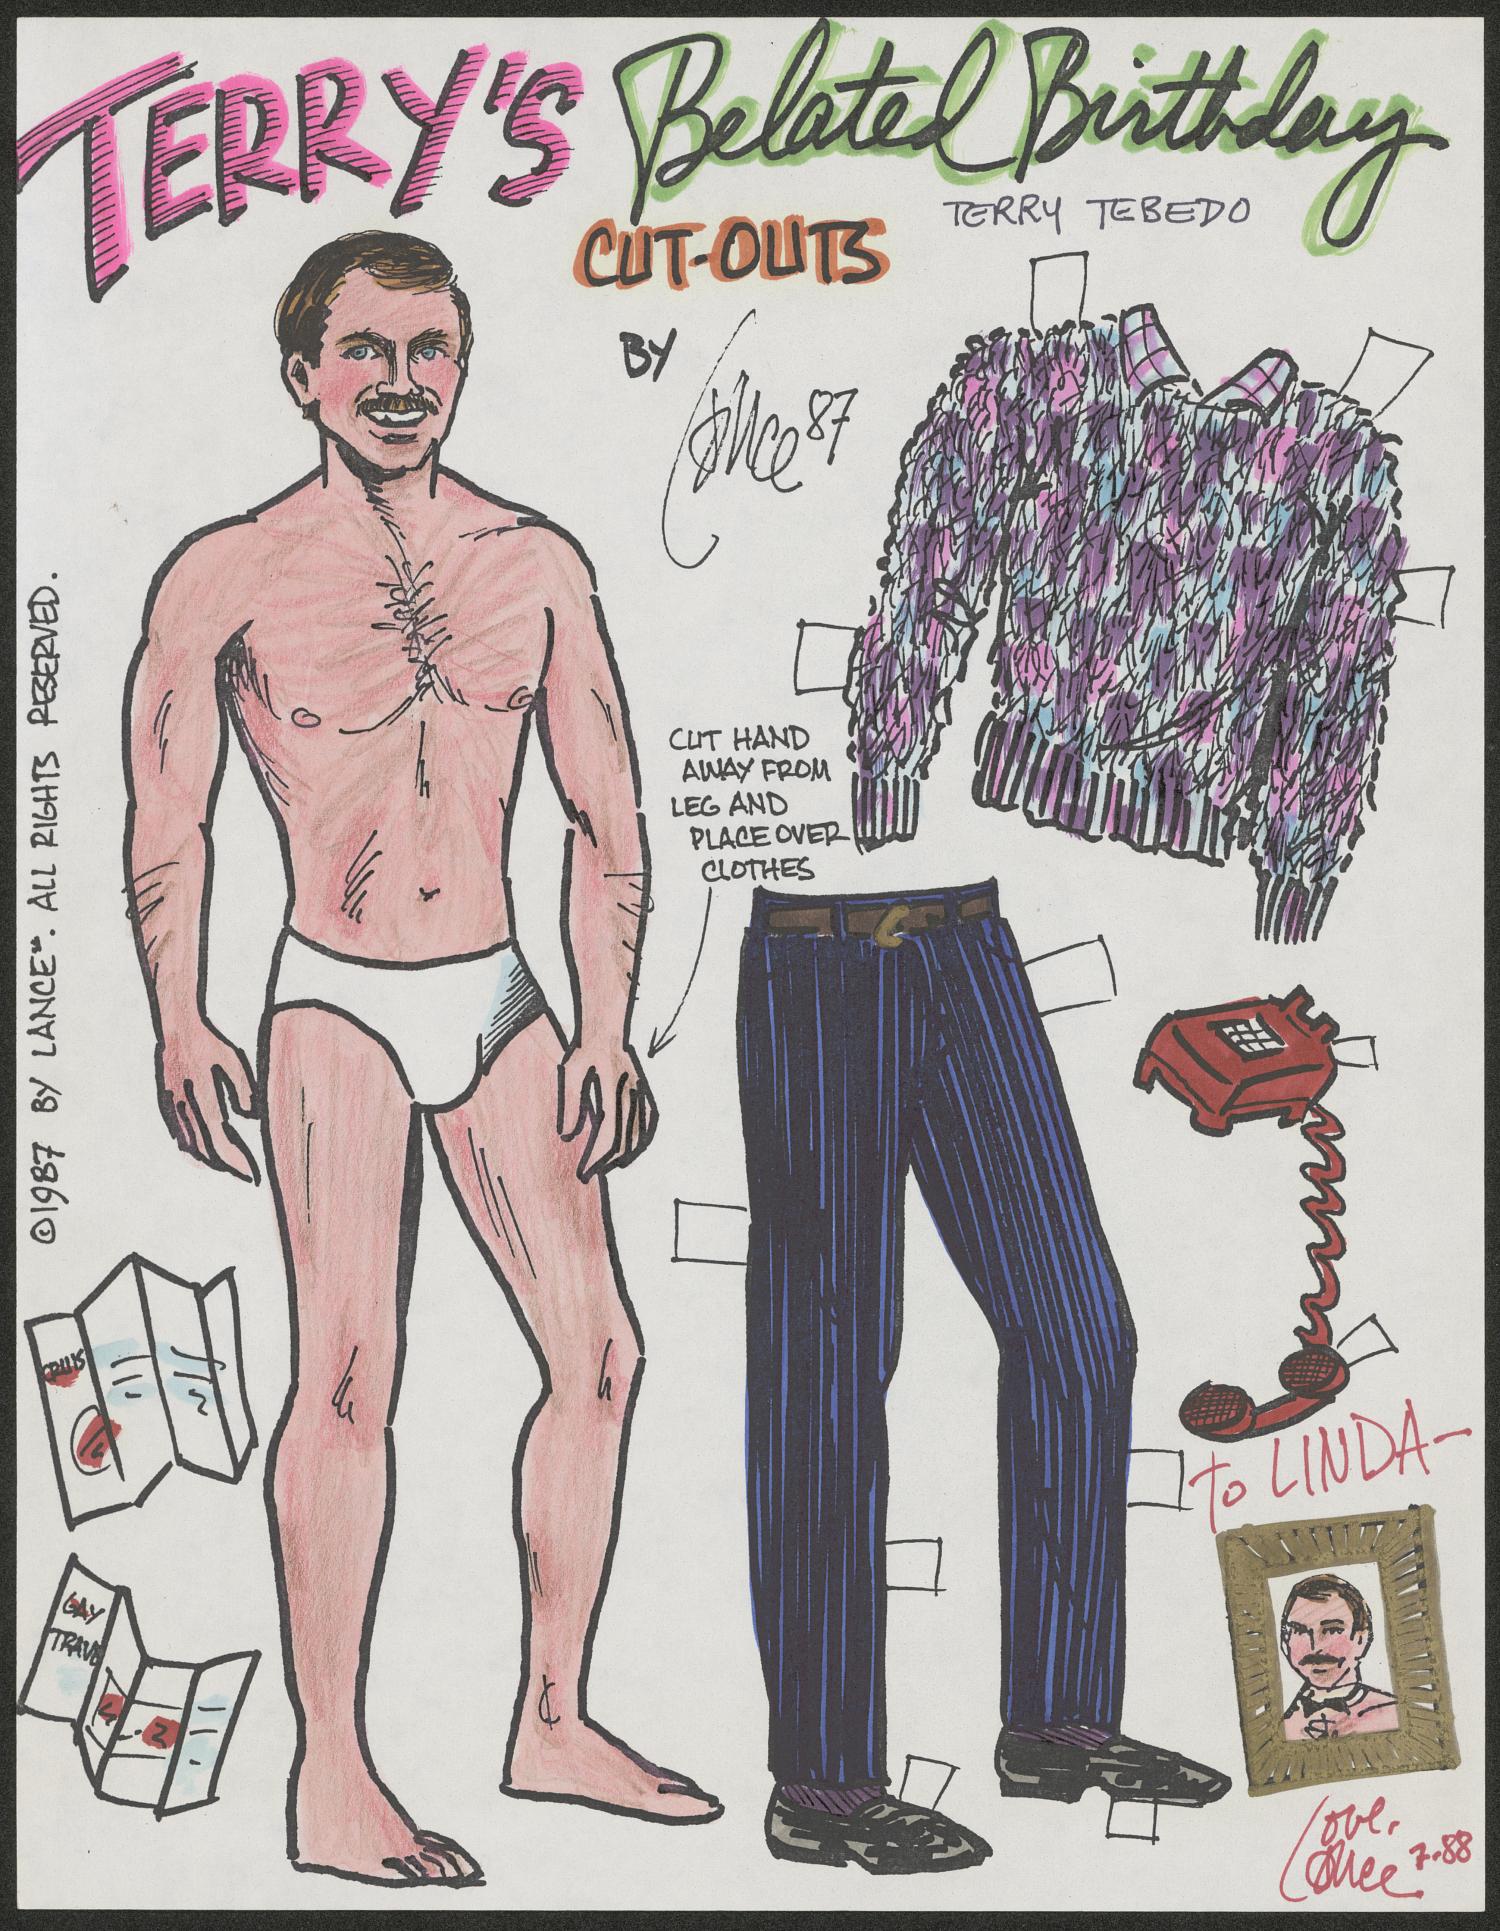 TERRY'S Belated Birthday
TERRY TEBEDO
CUT-OUTS
BY Lance 87
CUT HAND
AWAY FROM
LEG AND
PLACE OVER
CLOTHES
©1987 BY LANCE℠. ALL RIGHTS RESERVED.
GAY
TRAVEL
To LINDA-
Love,
Lance 7.88